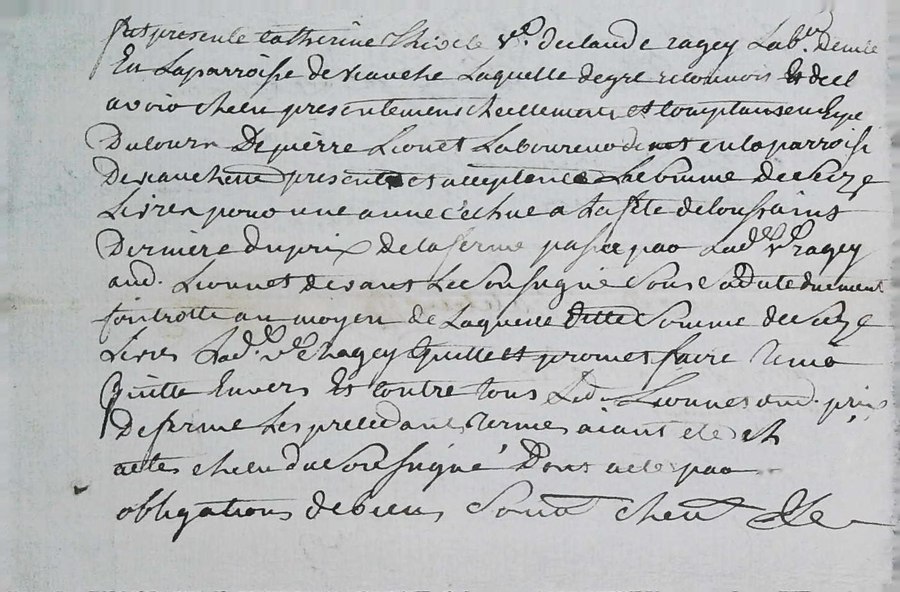 fut presente Catherine thiode vve. de claude ragey Lab.r Demte
En Laparroisse de vauche Laquelle de gre reconnois Et de cl
avoir cheu presentement reellement et comptant en Espe
Du cours De pierre Lionet Laboureur demt en la parroisse
De present et acceptant La somme de seize
Livres pour une annee Echue a La fete de toussaints
Derniere du prix de la ferme passee par Lad. vve ragey
aud. Lionnet devant Le soussigne sous sa date duement
Controlle au moyen de Laquelle ditte somme de seize
Livres Lad. vve Ragey quitte Et promet faire tenir
Quitte Envers Et contre tous Led. Lionnet dud. prix
De ferme Les precedans termes aiant ete
actes cheu du soussigné Dont acte par
obligations de biens soum cheu